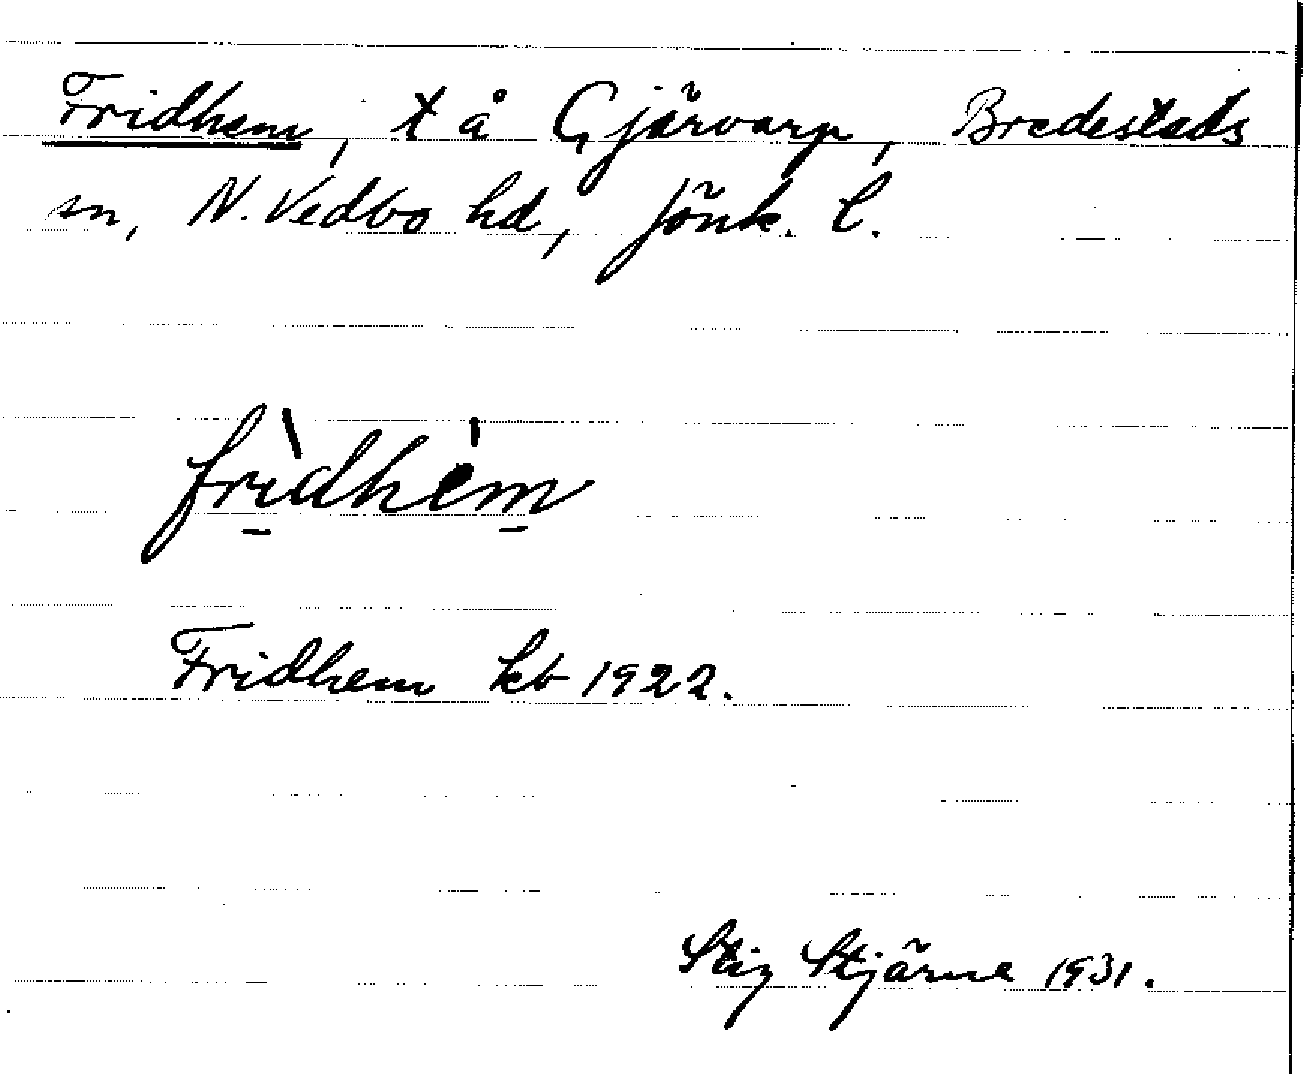 Fridhem, t å Gjärvarp, Bredestads
sn, N. Vedbo hd, Jönk. l.
frìdhém
Fridhem kb 1922.
Stig Stjärne 1931.